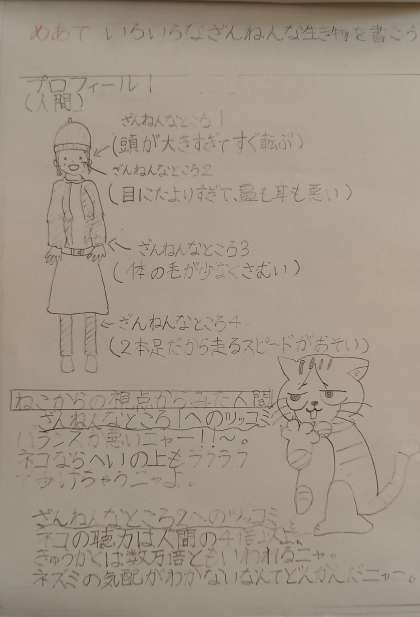 めあて いろいろなざんねんな生き物を書こう
プロフィール1
(人間)
ざんねんなところ1
(頭が大きすぎてすぐ転ぶ)
ざんねんなところ2
(目にたよりすぎて、鼻も耳も悪い)
ざんねんなところ3
(体の毛が少なくさむい)
ざんねんなところ4
(2本足だから走るスピードがおそい)
ねこからの視点からみた人間
ざんねんなところ1へのツッコミ
バランスが悪いニャー!!〜。
ネコならへいの上もラクラク
ちゃうニャよ。
ざんねんなところ2へのツッコミ
ネコの聴力は人間の4倍以上、
きゅうかくは数万倍ともいわれるニャ。
ネズミの気配がわかないなんてどんかんだニャー。